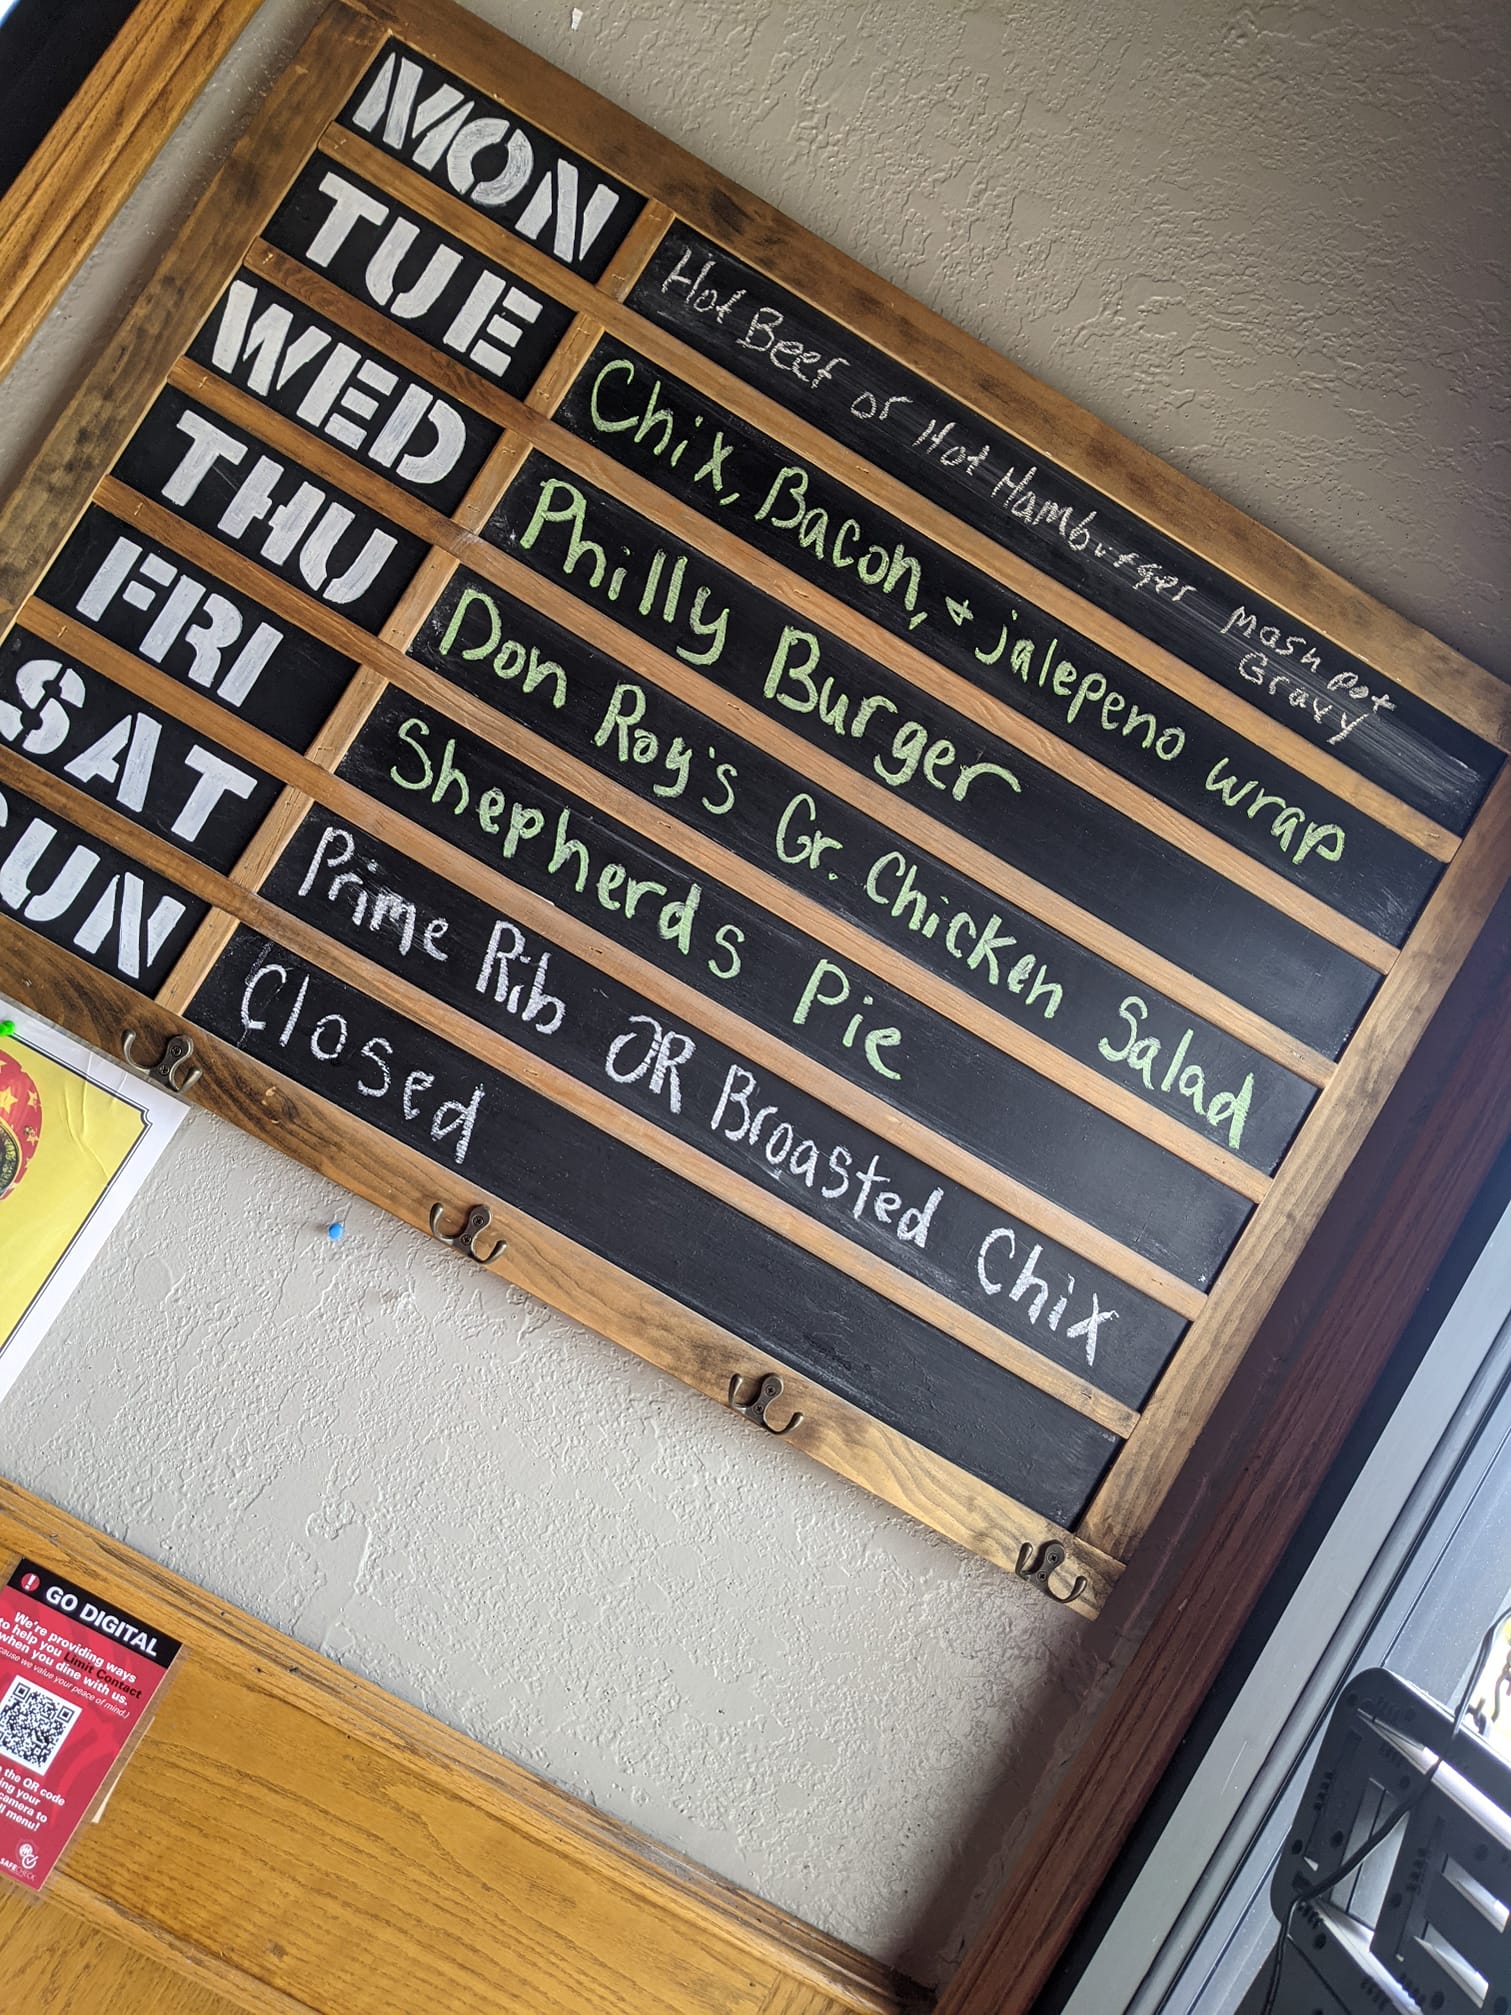 MON
Hot Beef or Hot Hamburger mash pot
Gravy
TUE
Chix, Bacon, & jalepeno wrap
WED
Philly Burger
THU
Don Roy's Gr. Chicken Salad
FRI
Shepherds Pie
SAT
Prime Rib OR Broasted Chix
SUN
Closed
! GO DIGITAL
We're providing ways
to help you Limit Contact
when you dine with us.
we value your peace of mind.)
the QR code
your
camera to
menu!
SAFECHECK